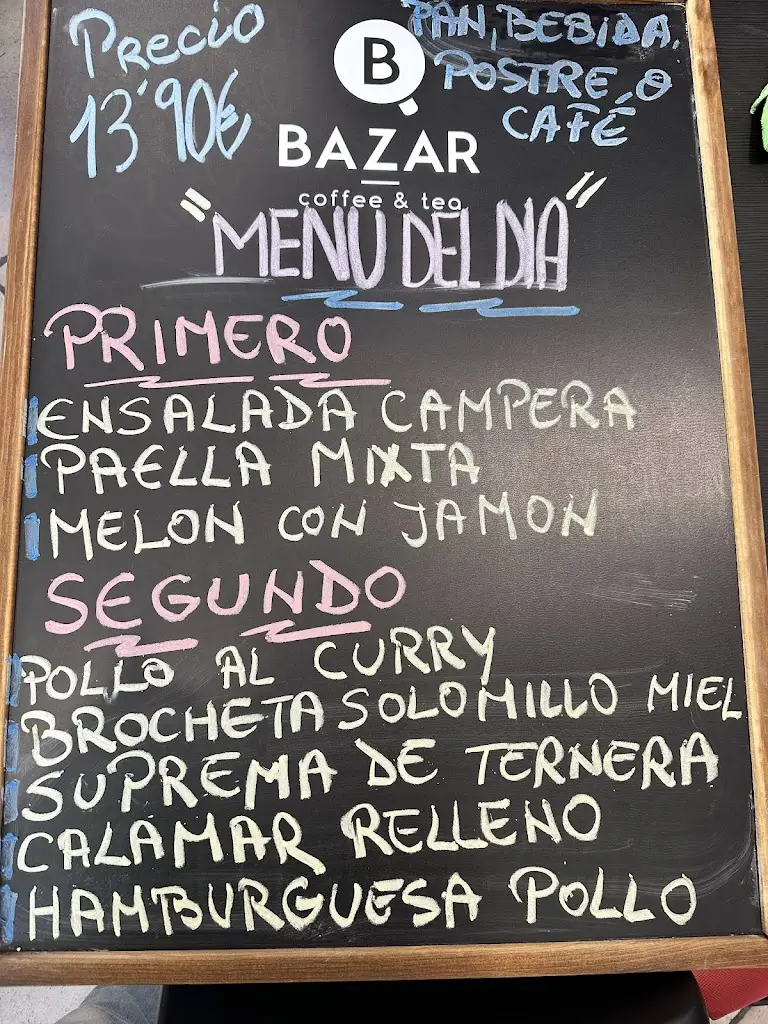 Precio
13'90€
PAN, BEBIDA,
POSTRE O
CAFÉ
B
BAZAR
coffee & tea
"MENU DEL DIA"
PRIMERO
ENSALADA CAMPERA
PAELLA MIXTA
MELON CON JAMON
SEGUNDO
POLLO AL CURRY
BROCHETA SOLOMILLO MIEL
SUPREMA DE TERNERA
CALAMAR RELLENO
HAMBURGUESA POLLO